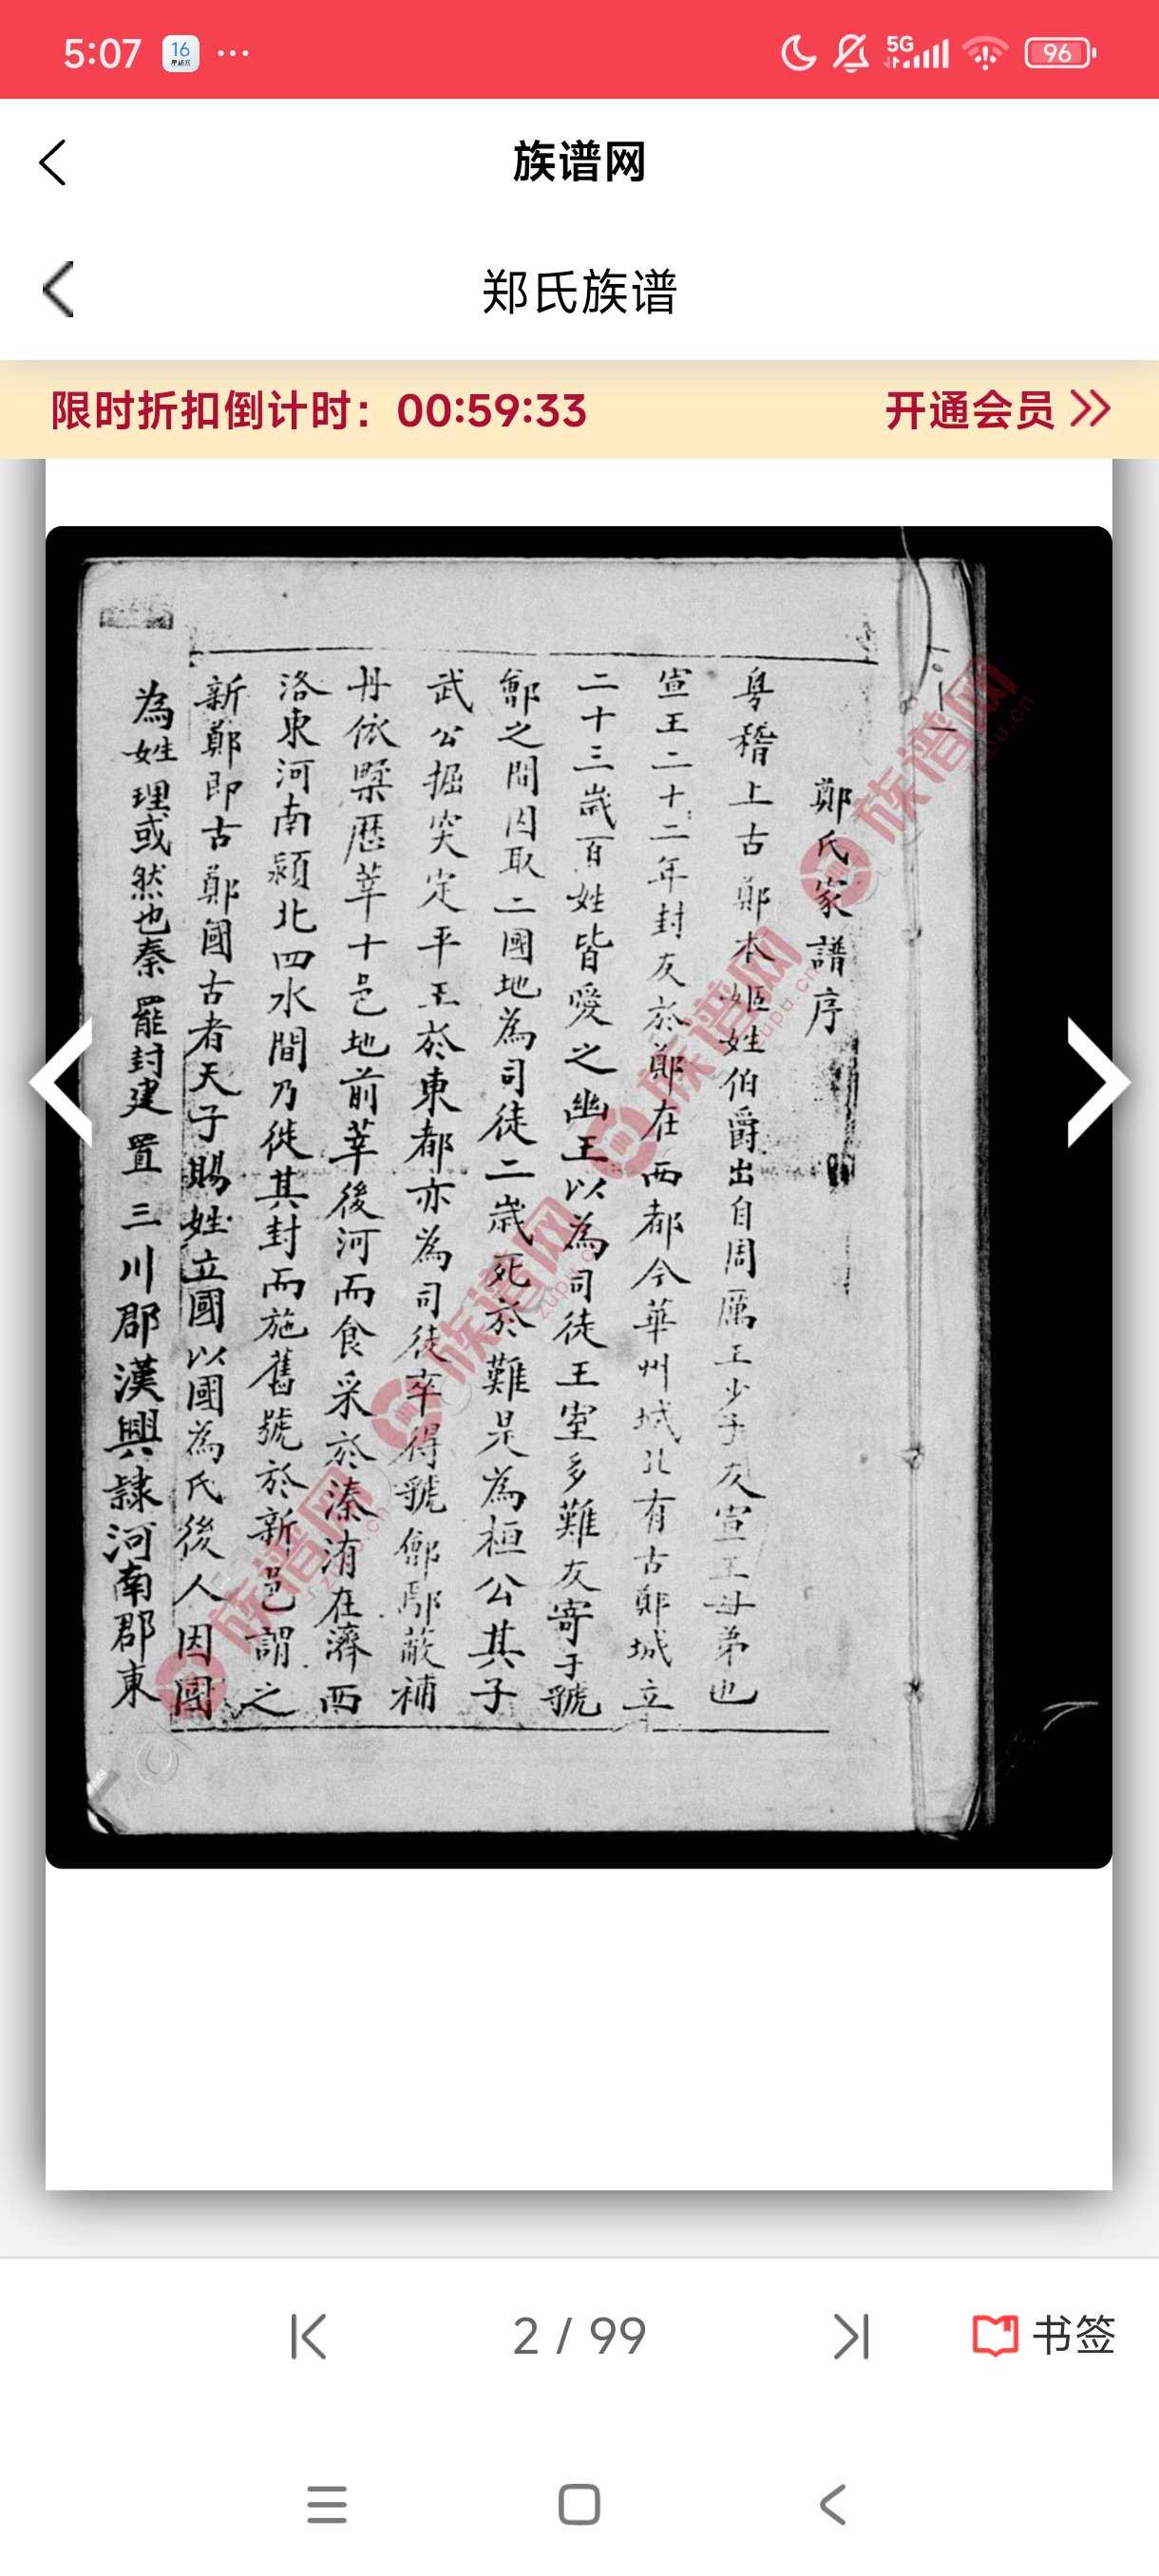 5:07
16
星期五
5G
96
族谱网
郑氏族谱
限时折扣倒计时：00:59:33
开通会员
鄭氏家譜序
粤稽上古鄭本姬姓伯爵出自周厲王少子友宣王母弟也
宣王二十二年封友於鄭在西都今華州城北有古鄭城立
二十三歲百姓皆愛之幽王以為司徒王室多難友寄于號
鄶之間因取二國地為司徒二歲死於難是為桓公其子
武公掘突定平王於東都亦為司徒卒得號鄶鄢蔽補
丹依㽥歷莘十邑地前莘後河而食采於溱洧在濟西
洛東河南潁北四水間乃徙其封而施舊號於新邑謂之
新鄭即古鄭國古者天子賜姓立國以國為氏後人因國
為姓理或然也秦罷封建置三川郡漢興隸河南郡東
族谱网
zupu.cn
族谱网
zupu.cn
族谱网
zupu.cn
族谱网
zupu.cn
2 / 99
书签